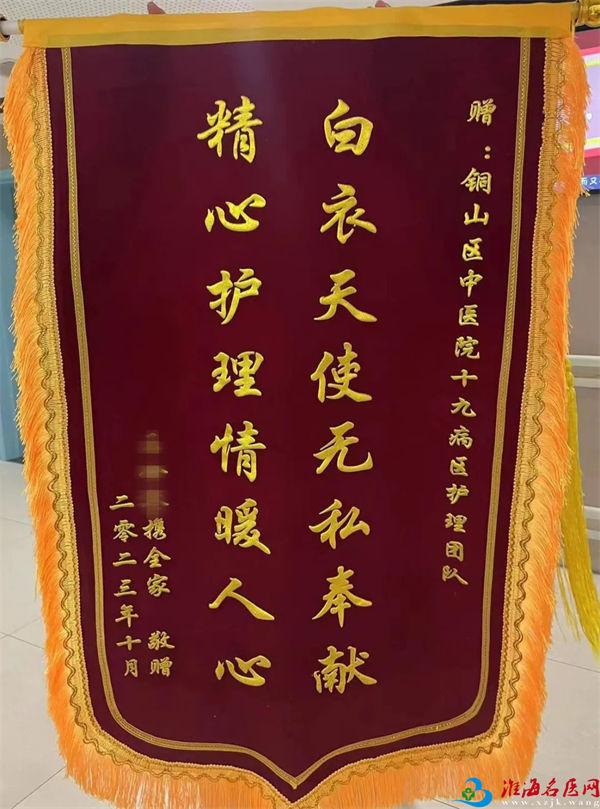 赠：铜山区中医院十九病区护理团队
白衣天使无私奉献
精心护理情暖人心
携全家 敬赠
二零二三年十月
而又
淮海名医网
www.xzjk.wang